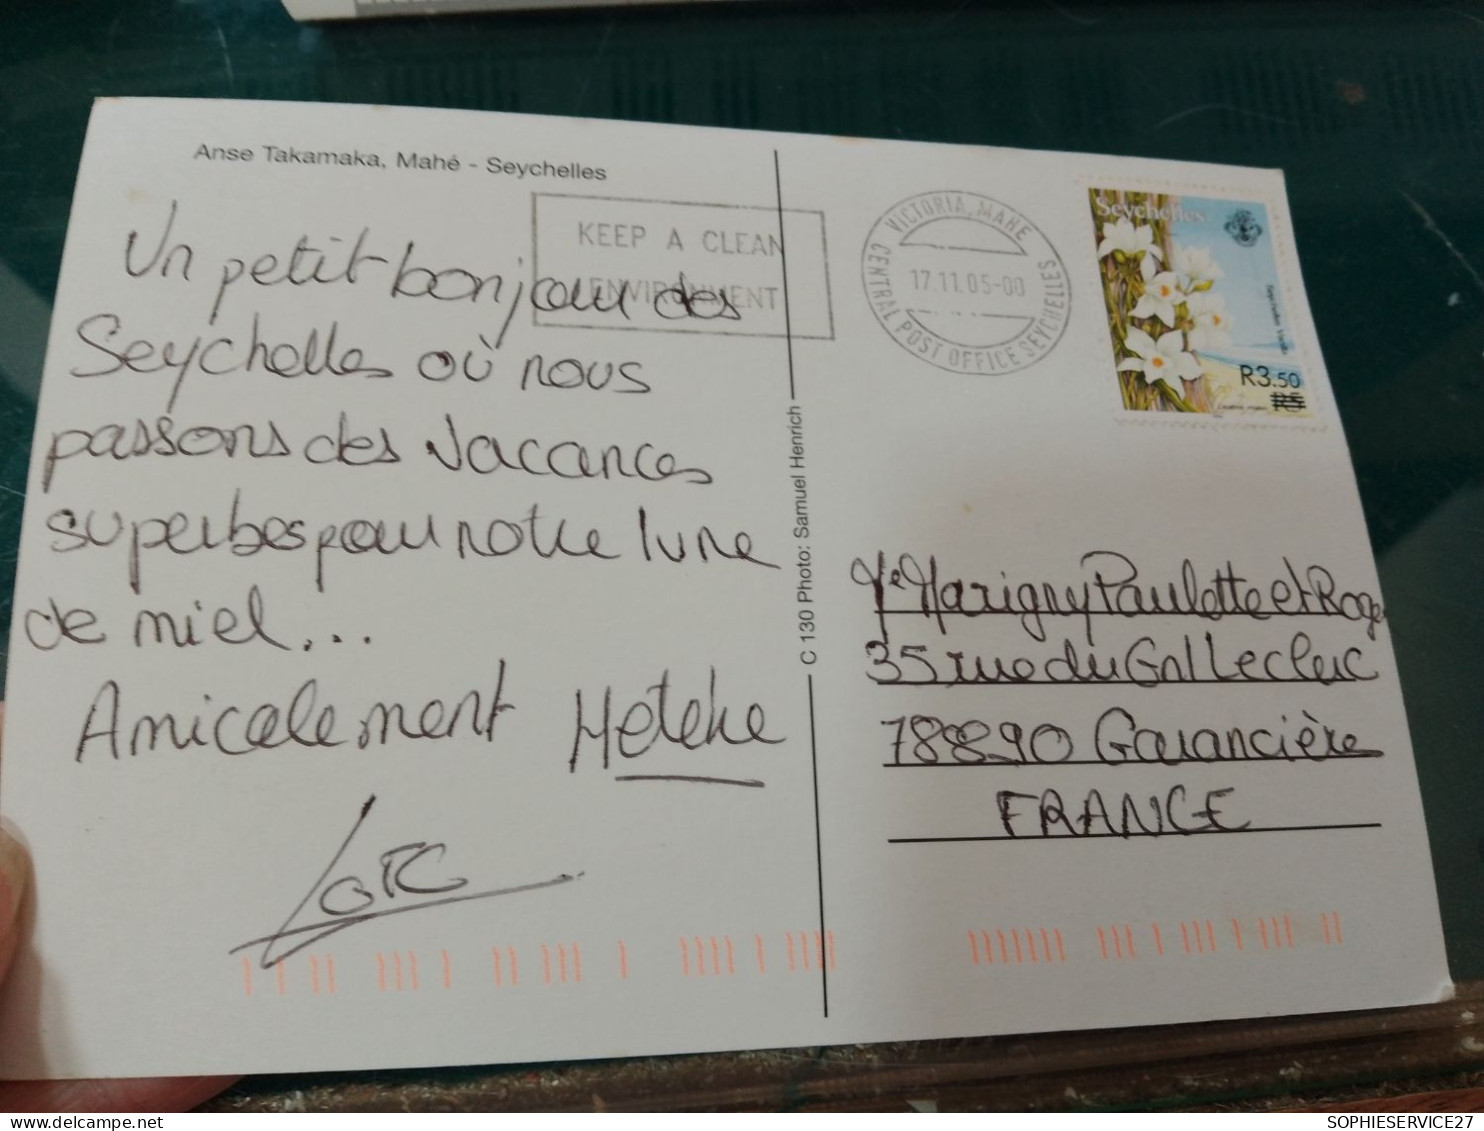 Anse Takamaka, Mahé - Seychelles
Un petit bonjour des
Seychelles où nous
passons des vacances
superbes pour notre lune
de miel...
Amicalement
KEEP A CLEAN
ENVIRONMENT
C 130 Photo: Samuel Henrich
VICTORIA, MAHE
17.11.05-00
CENTRAL POST OFFICE SEYCHELLES
Seychelles
Seychelles Vanilla
R3.50
R5
Marigny Paulette et Roger
35 rue du Gal Leclerc
78890 Garancière
FRANCE
SOPHIESERVICE27